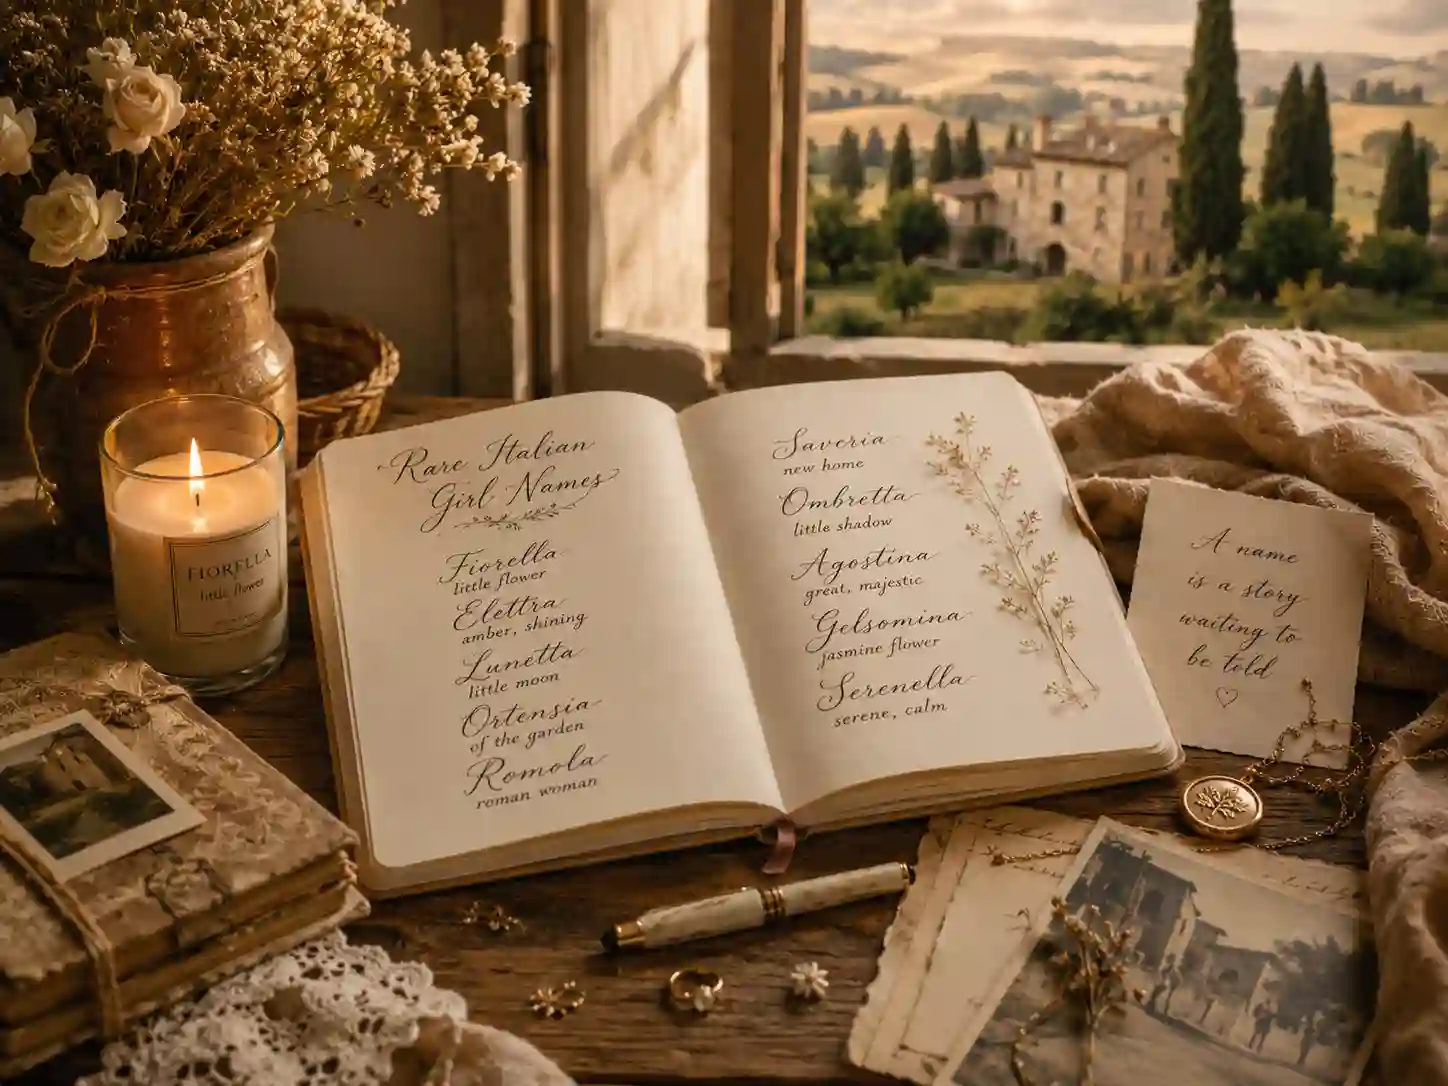 Rare Italian
Girl Names
Fiorella
little flower
Elettra
amber, shining
Lunetta
little moon
Ortensia
of the garden
Romola
roman woman
Saveria
new home
Ombretta
little shadow
Agostina
great, majestic
Gelsomina
jasmine flower
Serenella
serene, calm
A name
is a story
waiting to
be told
FIORELLA
little flower